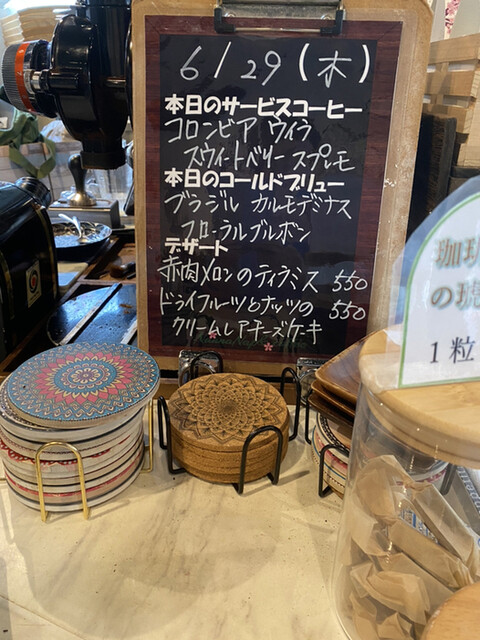 6/29(木)
本日のサービスコーヒー
コロンビア ウィラ
スウィートベリー スプレモ
本日のコールドブリュー
ブラジル カルモデミナス
フローラルブルボン
デザート
赤肉メロンのティラミス 550
ドライフルーツとナッツの 550
クリームレアチーズケーキ
珈琲
の琥
1粒